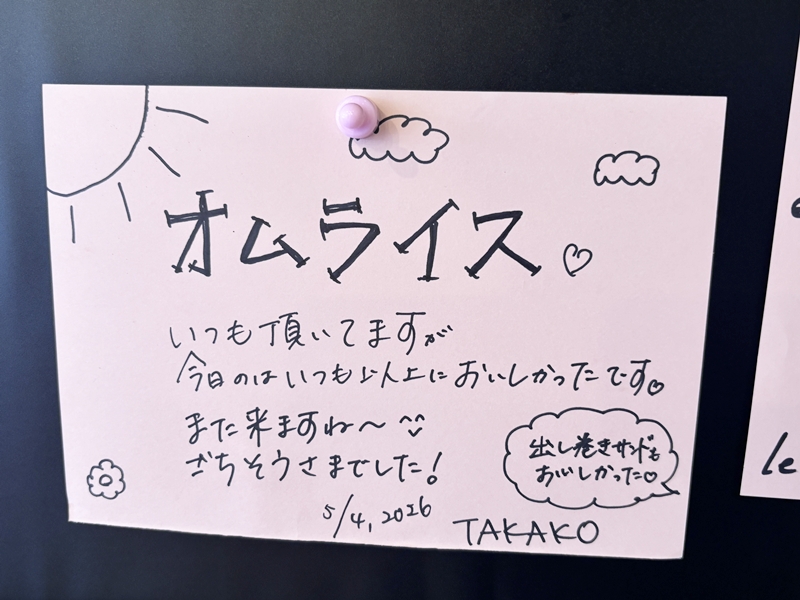 オムライス♡
いつも頂いてますが
今日のはいつも以上においしかったです♡
また来ますね〜
ごちそうさまでした!
出し巻きサンドも
おいしかった♡
5/4, 2026
TAKAKO
le